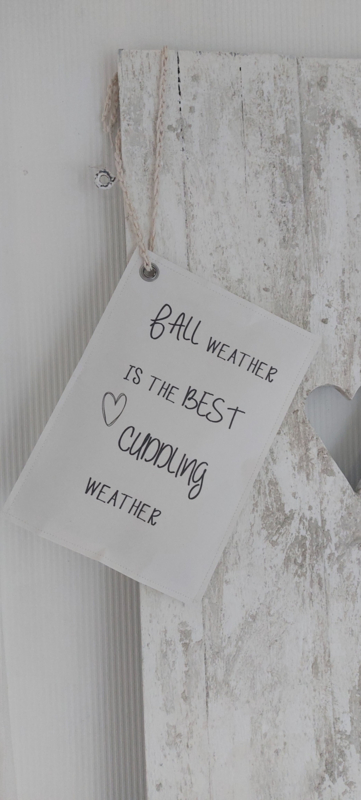 fall WEATHER
IS THE BEST
CUDDLING
WEATHER